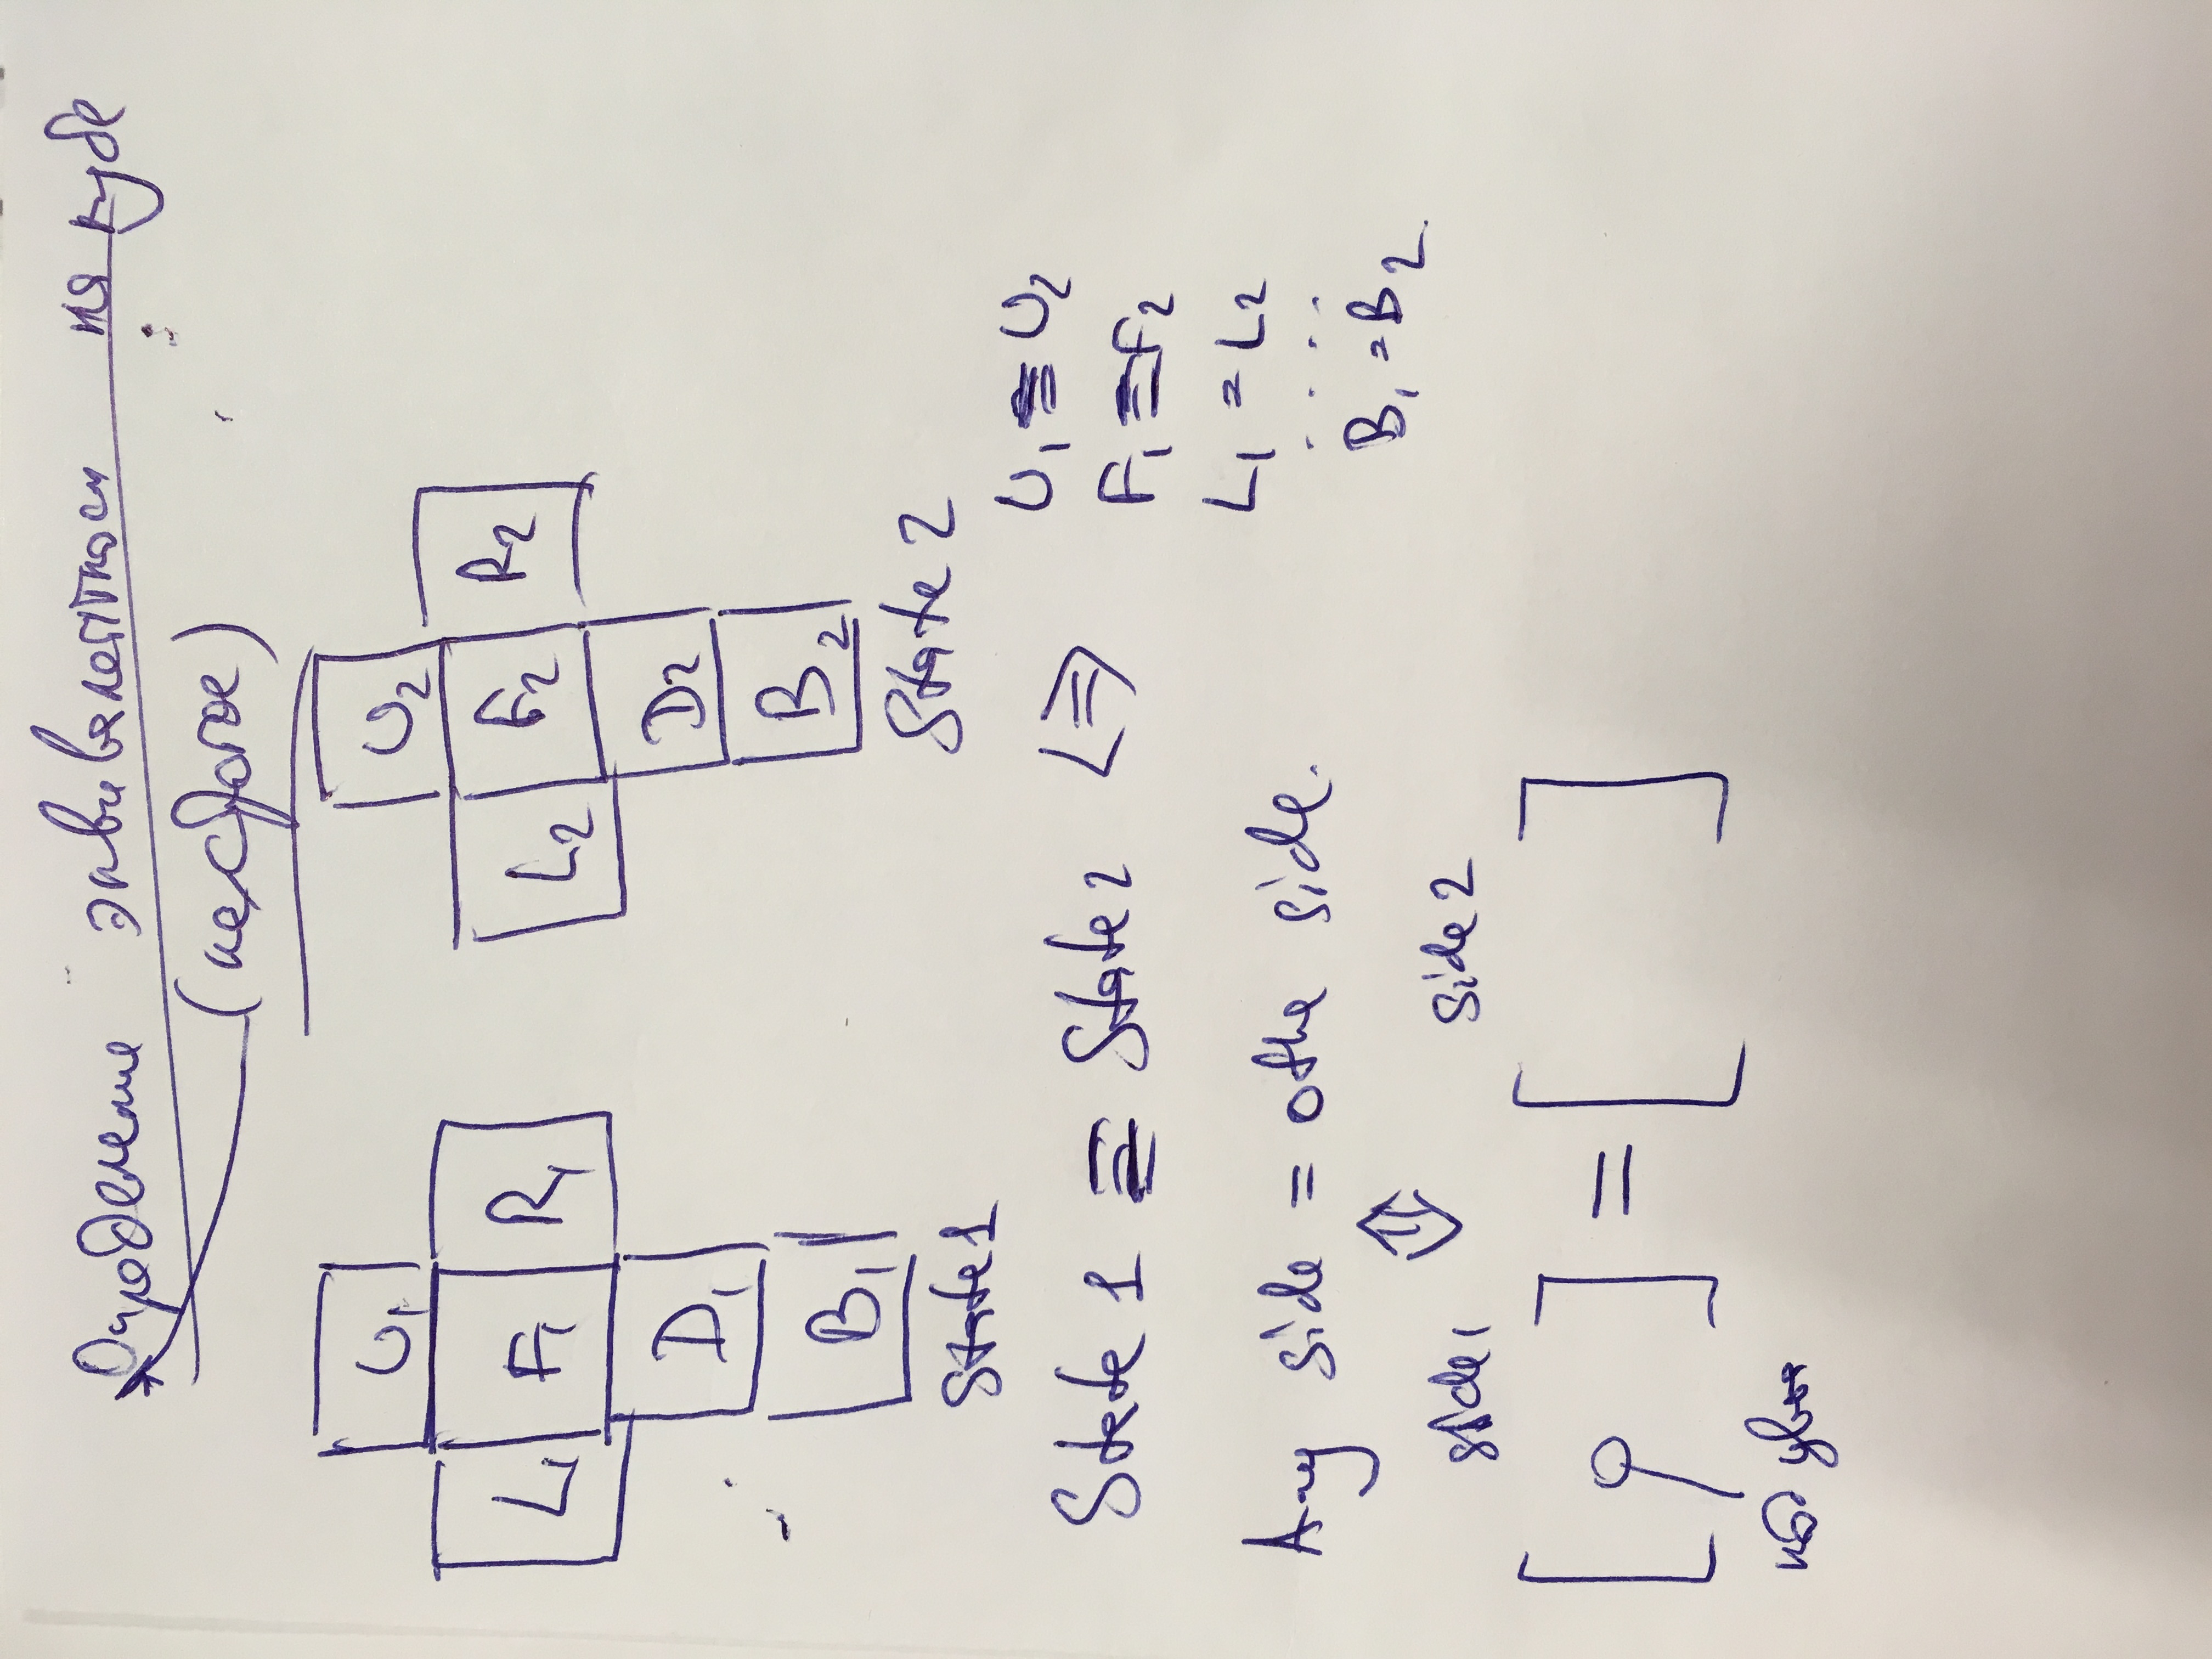 Определение эквивалентности на кубе
(нестрогое)
U1 U2
L1 F1 R1 L2 F2 R2
D1 D2
B1 B2
State 1 State 2
State 1 ≡ State 2 <=> U1 ≡ U2
F1 ≡ F2
L1 = L2
. . . .
B1 = B2
Any side = othe side.
side1 side 2
[ ] = [ ]
код цвета